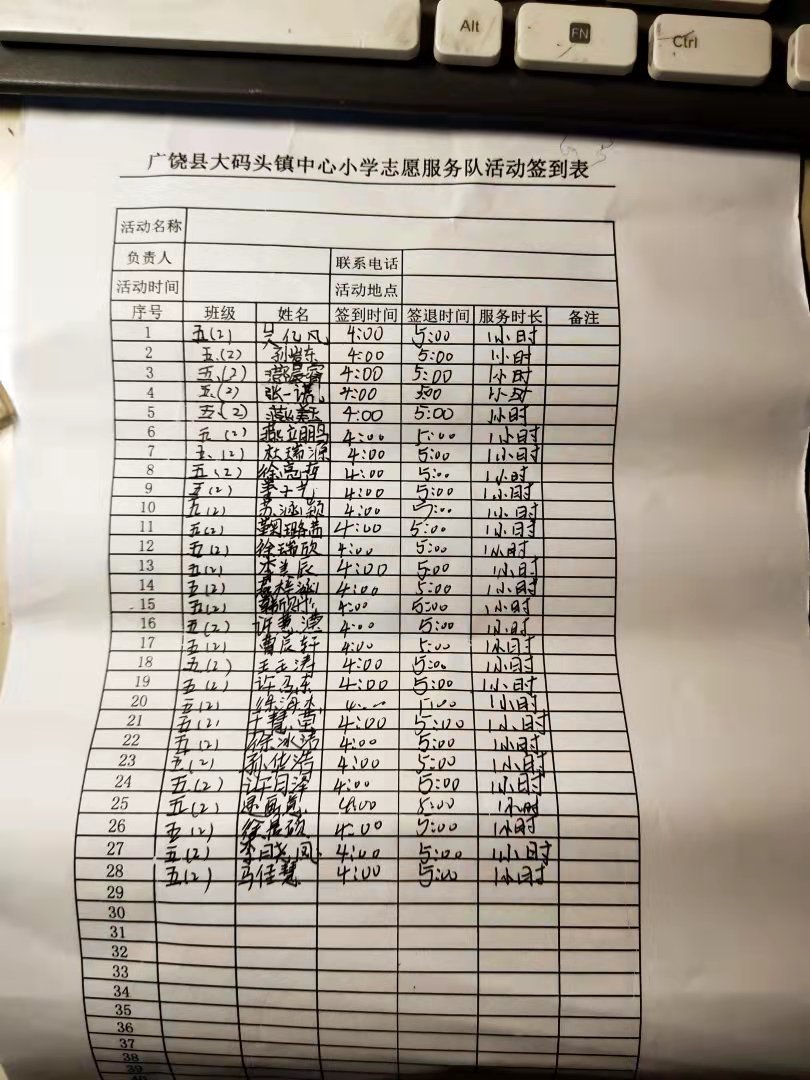 Alt
FN
Ctrl
广饶县大码头镇中心小学志愿服务队活动签到表
活动名称
负责人 联系电话
活动时间 活动地点
序号 班级 姓名 签到时间 签退时间 服务时长 备注
1 五(2) 吴亿风 4:00 5:00 1小时
2 五(2) 4:00 5:00 1小时
3 五(2) 4:00 5:00 1小时
4 五(2) 张一诺 4:00 5:00 1小时
5 五(2) 4:00 5:00 1小时
6 五(2) 燕立鹏 4:00 5:00 1小时
7 五(2) 杜瑞源 4:00 5:00 1小时
8 五(2) 徐亮哲 4:00 5:00 1小时
9 五(2) 4:00 5:00 1小时
10 五(2) 苏涵颖 4:00 5:00 1小时
11 五(2) 4:00 5:00 1小时
12 五(2) 徐瑞欣 4:00 5:00 1小时
13 五(2) 李美辰 4:00 5:00 1小时
14 五(2) 4:00 5:00 1小时
15 五(2) 4:00 5:00 1小时
16 五(2) 4:00 5:00 1小时
17 五(2) 曹辰轩 4:00 5:00 1小时
18 五(2) 4:00 5:00 1小时
19 五(2) 4:00 5:00 1小时
20 五(2) 徐海杰 5:00 1小时
21 五(2) 4:00 5:00 1小时
22 五(2) 徐冰洁 4:00 5:00 1小时
23 五(2) 孙佳浩 4:00 5:00 1小时
24 五(2) 4:00 5:00 1小时
25 五(2) 4:00 5:00 1小时
26 五(2) 4:00 5:00 1小时
27 五(2) 李晓凤 4:00 5:00 1小时
28 五(2) 马佳慧 4:00 5:00 1小时
29
30
31
32
33
34
35
36
37
38
39